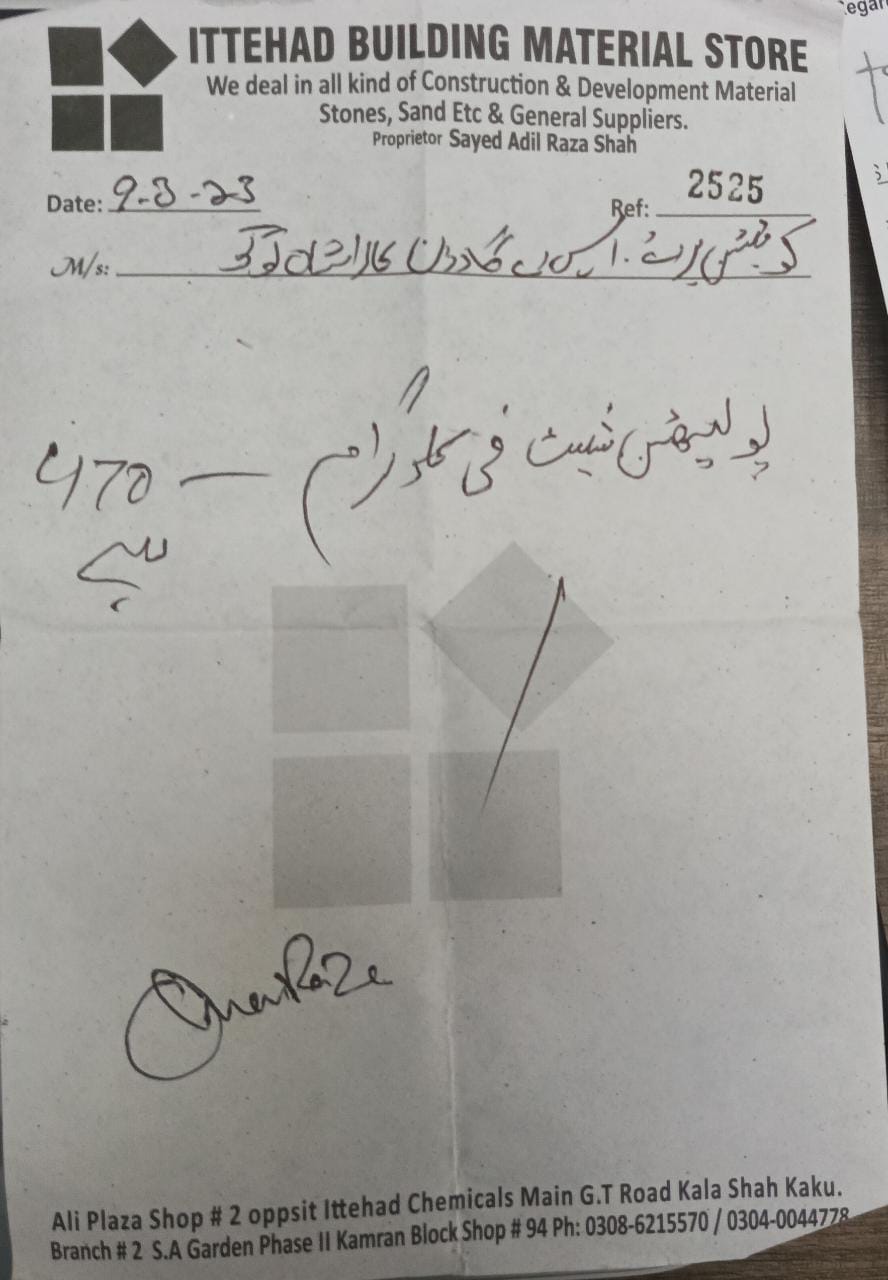 ITTEHAD BUILDING MATERIAL STORE
We deal in all kind of Construction & Development Material
Stones, Sand Etc & General Suppliers.
Proprietor Sayed Adil Raza Shah
Date: 9-3-23
Ref: 2525
M/s: کوٹیشن برائے
پولیتھن شیٹ فی کلوگرام — 470
روپے
Ali Plaza Shop # 2 oppsit Ittehad Chemicals Main G.T Road Kala Shah Kaku.
Branch # 2 S.A Garden Phase II Kamran Block Shop # 94 Ph: 0308-6215570 / 0304-0044778